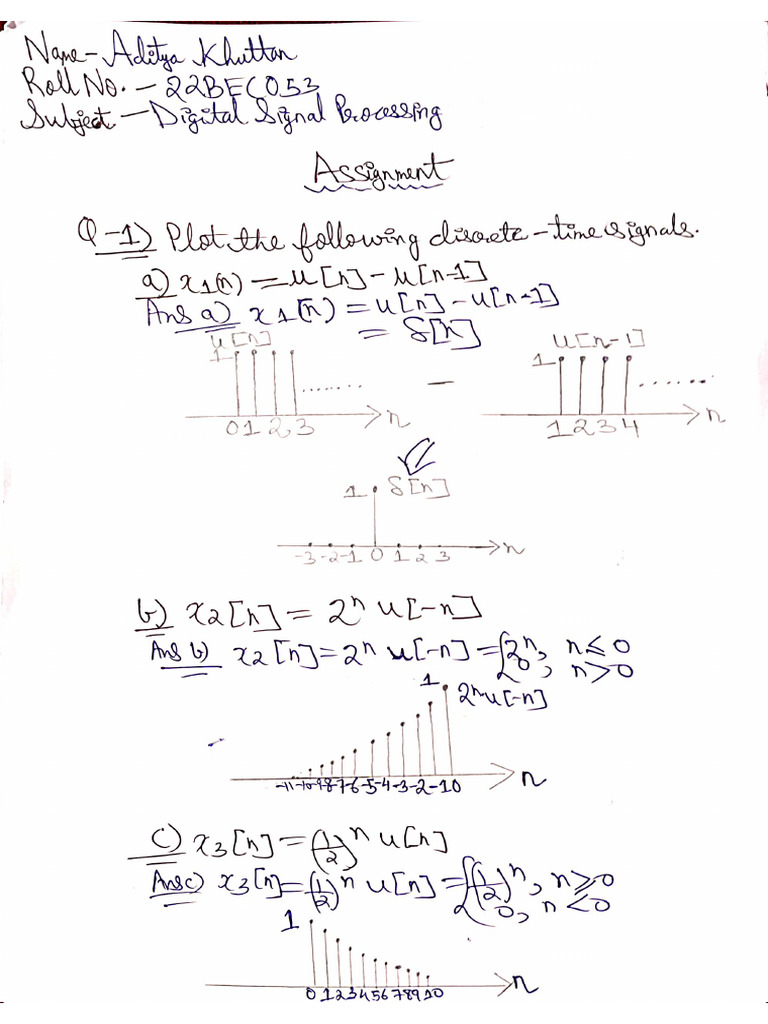 Name- Aditya Khuttan
Roll No. - 22BEC053
Subject - Digital Signal Processing
Assignment
Q-1) Plot the following discrete-time signals.
a) x1(n) = u[n] - u[n-1]
Ans a) x1(n) = u[n] - u[n-1]
= δ[n]
u[n] u[n-1]
1 ....... - 1 .......
0 1 2 3 n 1 2 3 4 n
1 δ[n]
-3 -2 -1 0 1 2 3 n
b) x2[n] = 2^n u[-n]
Ans b) x2[n] = 2^n u[-n] = { 2^n, n ≤ 0
0, n > 0
1 2^n u[-n]
-11 -10 -9 -8 -7 -6 -5 -4 -3 -2 -1 0 n
c) x3[n] = (1/2)^n u[n]
Ans c) x3[n] = (1/2)^n u[n] = { (1/2)^n, n ≥ 0
0, n < 0
1
0 1 2 3 4 5 6 7 8 9 10 n